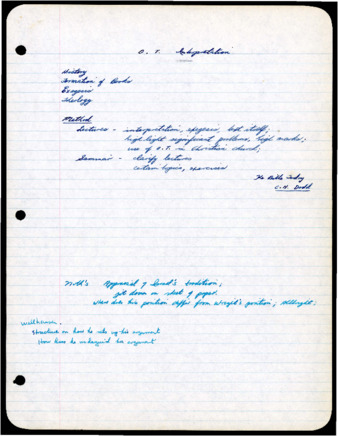 O. T. Interpretation
History
Formation of Books
Exegesis
Theology
Method
Lectures - interpretation, exegesis, text itself;
high light significant problems, high marks;
use of O.T. in Christian church;
Seminar - clarify lectures
certain topics, exercises
The Bible Today
C.H. Dodd
Noth's Appraisal of Israel's tradition;
get down on sheet of paper.
does his position differ from Wright's position; Albright;
Wellhausen.
Structure on how he sets up his argument
How does he his argument